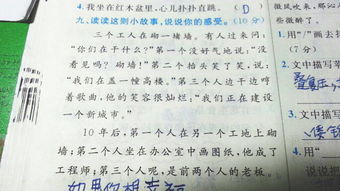 4.我坐在红木盆里,心儿扑扑直跳。 ( D )
九、读读这则小故事,说说你的感受。(10分)
三个工人在砌一堵墙。有人过来问:
“你们在干什么?”第一个没好气地说:“没
看见吗?砌墙!”第二个抬头笑了笑,说:
“我们在盖一幢高楼。”第三个人边干边哼
着歌曲,他的笑容很灿烂:“我们正在建设
一个新城市。”
10年后,第一个人在另一个工地上砌
墙;第二个人坐在办公室中画图纸,他成了
工程师;第三个人呢,是前两个人的老板。
如果你想幸福
微风吹来,那沁
些微醉了。
2.用“/”画去
(7分)
文中描写
3.文中描写
4.用“
说说把